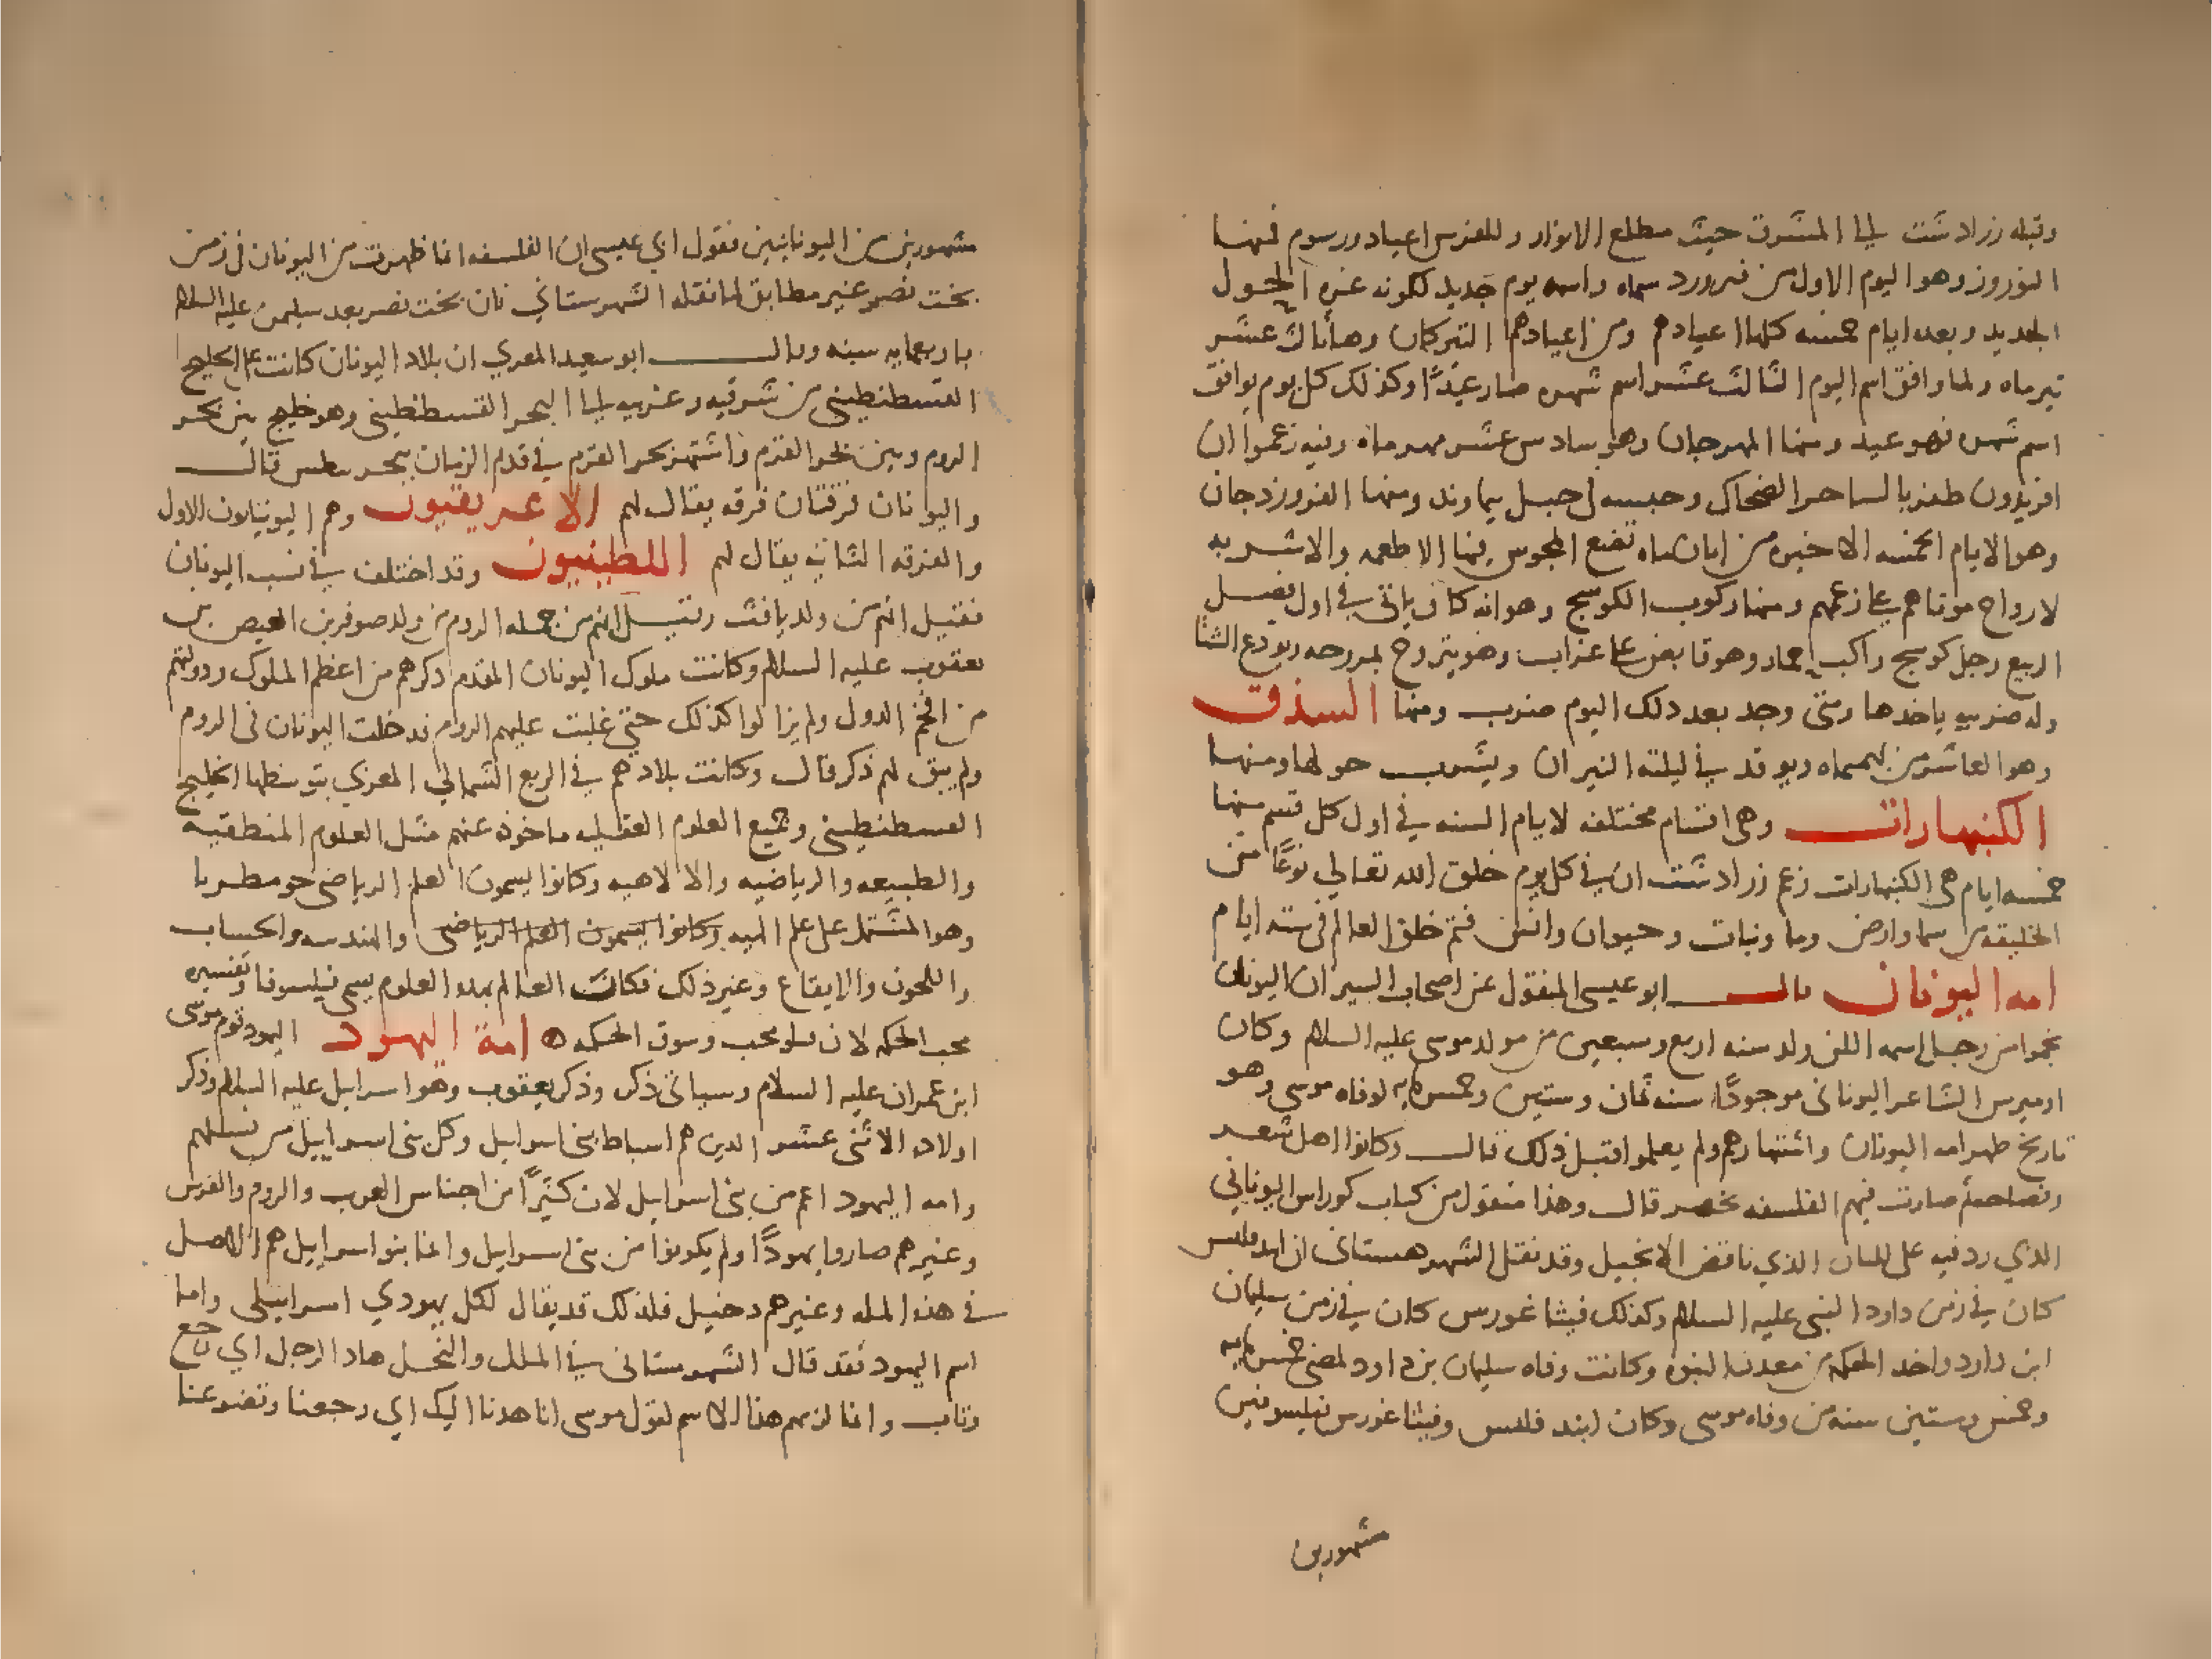 وقبله زرادشت الى المشرق حيث مطلع الانوار وللفرس اعياد ورسوم فمنها
النوروز وهو اليوم الاول من فرورد ىىماه واسمه يوم جديد لكونه غره الحول
الجديد وبعده ايام خمسه كلها اعيادهم ومن اعيادهم التيركان وهو ثالث عشر
تيرماه ولما وافق اسم اليوم الثالث عشر اسم شهره صار عيدًا وكذلك كل يوم يوافق
اسم شهره فهو عيد ومنها المهرجان وهو سادس عشر مهرماه وفيه زعموا ان
افريدون ظفر بالساحر الضحاك وحبسه في جبل دماوند ومنها الفروردجان
وهو الايام الخمسه الاخيره من ابان ماه تضع المجوس فيها الاطعمه والاشربه
لارواح موتاهم على زعمهم ومنها ركوب الكوسج وهو انه كان ياتي في اول فصل
الربيع رجل كوسج راكب حمار وهو قابض على غراب وهو يتروح بمروحه ويودع الشتا
وله ضريبه ياخدها ومتى وجد بعد دلك اليوم ضرب ومنها السذق
وهو العاشر من بهمنماه ويوقد في ليلته النيران ويشرب حولها ومنها
الكنبهارات وهي اقسام مختلفه لايام السنه في اول كل قسم منها
خمسه ايام هي الكنبهارات زعم زرادشت ان في كل يوم خلق الله تعالي نوعًا من
الخليقه من سما وارض وما ونبات وحيوان وانس فتم خلق العالم في سته ايام
امه اليونان قال ابو عيسى المنقول عن اصحاب السير ان اليونان
نجموا من رجل اسمه اللن ولد سنه اربع وسبعين من مولد موسى عليه السلام وكان
اوميرس الشاعر اليوناني موجودًا سنه ثمان وستين وخمس مايه لوفاه موسى وهو
تاريخ ظهر امه اليونان واشتهارهم ولم يعلموا قبل ذلك قال وكانوا اهل شعر
وفصاحه ثم صارت فيهم الفلسفه بختنصر قال وهذا منقول من كتاب كوراس اليوناني
الذي رد فيه على للىان الذي ناقض الانجيل وقد نقل الشهرهستاني ان ابيدقلس
كان في زمن داود النبي عليه السلام وكذلك فيثاغورس كان في زمن سليمان
ابن داود واخد الحكمه من معدن النبوه وكانت وفاه سليمان بن داود لمضي خمس مايه
وخمس وستين سنه من وفاه موسى وكان ابند قلس وفيثاغورس فيلسوفين
مشهورين
مشهورين من اليونانيين فقول ابي عيسى ان الفلسفه انما ظهرت من اليونان في زمن
بخت نصر غير مطابق لما نقله الشهرستاني فان بخت نصر بعد سليمن عليه السلام
باربعمايه سنه وقال ابو سعيد المغربي ان بلاد اليونان كانت على الخليج
القسطنطيني من شرقيه وغربيه الى البحر القسطنطيني وهو خليج بين بحر
الروم وبين بحر القرم واشتهر بحر القرم في قدم الزمان ببحر نيطس قال
واليونان فرقتان فرقه يقال لهم الاغريقيون وهم اليونانيون الاول
والفرقه الثانيه يقال لهم اللطينيون وقد اختلف في نسب اليونان
فقيل انهم من ولد يافث وقيل انهم من جمله الروم من ولد صوفر بن العيص بن
يعقوب عليه السلام وكانت ملوك اليونان المقدم ذكرهم من اعظم الملوك ودولتهم
من افخر الدول ولم يزالوا كذلك حتى غلبت عليهم الروم فدخلت اليونان في الروم
ولم يبق لهم ذكر قال وكانت بلادهم في الربع الشمالي المغربي يتوسطها الخليج
القسطنطيني وجميع العلوم العقليه ماخوذه عنهم مثل العلوم المنطقيه
والطبيعه والرياضيه والالاهيه وكانوا يسمون العلم الرياضي جومطريا
وهو المشتمل على علم الهيه وكانوا يسمون العلم الرياضي والهندسه والحساب
واللحون والايقاع وغير ذلك فكان العالم بهذه العلوم يسمى فيلسوفا وتفسيره
محب الحكمه لان فيلو محب وسوف الحكمه ه امة اليهود اليهود قوم موسى
ابن عمران عليه السلام وسياتي ذكره وذكر يعقوب وهو اسرايل عليه السلام وذكر
اولاده الاثني عشر الدين هم اسباط بني اسرايل وكل بني اسراييل من نسلهم
وامه اليهود اعم من بني اسرايل لان كثيرًا من اجناس العرب والروم والفرس
وغيرهم صاروا يهودًا ولم يكونوا من بني اسرايل وانما بنو اسرايل هم الاصل
في هذه المله وغيرهم دخيل فلذلك قد يقال لكل يهودي اسراييلي واما
اسم اليهود فقد قال الشهرستاني في الملل والنحل هاد الرجل اي رجع
وتاب وانما لزمهم هذا الاسم لقول موسى انا هدنا اليك اي رجعنا وتضرعنا